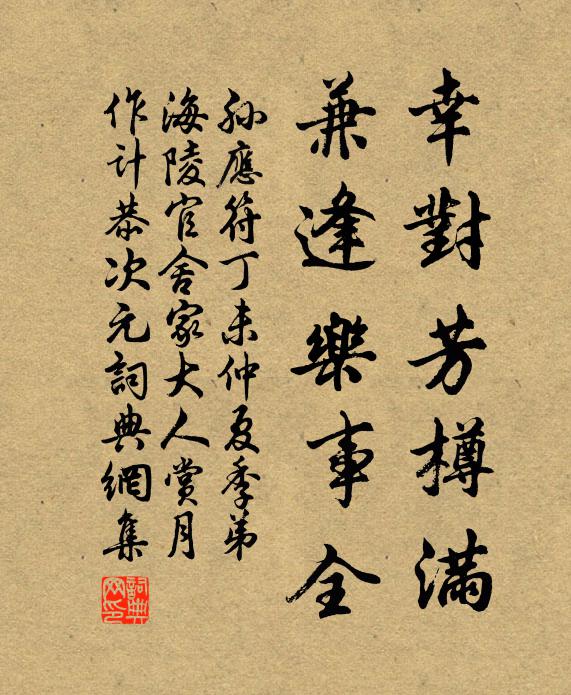 幸對芳樽滿
兼逢樂事全
孙應符丁未仲夏季弟
海陵官舍家大人賞月
作计恭次元詞典網集
詞典网印